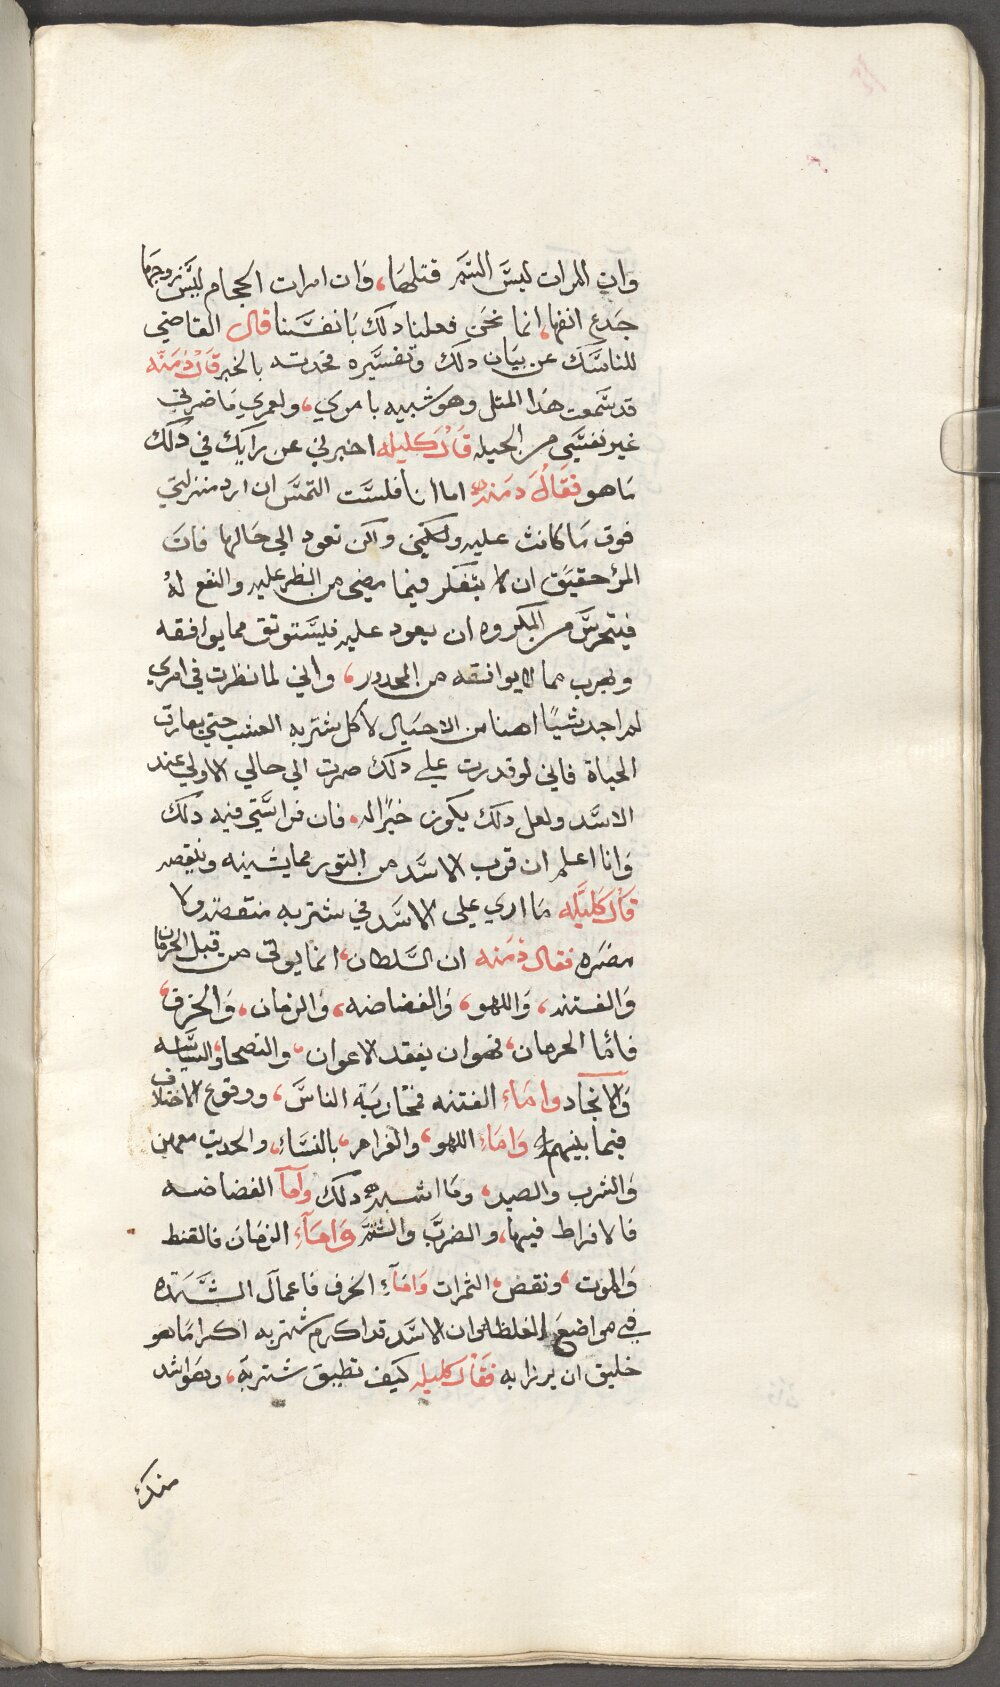 وان المرات ليسَّ السَّم قتلها، وَان امرات الحجام ليسَّ زوجها
جَدع انفها، انما نحَن فعلنا دلك بَانفسَّنا قال القاضي
للناسَّك عن بيَان دلك وتفسَّيره فحدثه بالخبر قَال دُمَنه
قد سَّمعت هَدا المتل وهو شبيه بامري، ولعمري مَا ضرني
غير نفسَّي من الحيله قَال كليله اخبرني عن رايك في دلك
مَا هو فقَالَ دَمنه اما انا فلسَّت التمسَّ ان ارد منزلتي
فوق مَا كانت عليه ولكني واكن تعود الي حَالها فان
المرُ حقيَق ان لا يتفكر فيما مضي من الضر عليه والنفع لهُ
فيتحرسَّ من المكروه ان يعود عليه فليسَّتوتق مما يوافقه
ويهرب مما لا يوافقه من المحدور، واني لما نظرت في امري
لم اجد شيًا اهنا من الاحتيال لاكل شتربه العشب حتي يفارق
الحياة فاني لو قدرت علي دلك صرت الي حالي الاولي عند
الاسَّد ولعل دلك يكون خيرًا له. فان فراسَّتي فيه دلك
وَانا اعلم ان قرب الاسَّد من التور مما يشينه وينقصه
قال كليَّله مَا اري علي الاسَّد في شتربه منقصه ولا
مضره فقال دُمَنه ان السَّلطان، انما يوتي من قبل الحرمان
وَالفتنه، وَاللهو، وَالفضاضه، وَالزمان، وَالخرق،
فامَّا الحرمان، فهو ان يفقد الاعوان، والنصحا، والسَّياسَّه
وَالانجاد وامَاء الفتنه فتحَاربَة الناسَّ، ووقوع الاختلاف
فيما بينهم وَامَاء اللهو، والغرام، بالنسَّاء، والحديت معهن
وَالشرب والصيد، ومَا اشبه دلك وآمآ الفضاضه
فالافراط فيها، والضربَّ والشَّتم وَامَآء الزمَان فالقنط
وَالموت، ونقض، التمرات وَامَآء الخرق فاعمآل الشَّده
في مواضع الغلظ وان الاسَّد قد اكرم شتربه اكرامَا هو
خليق ان يرزا به فقَال كليله كيف تطيق شتربَة، وهَو اشد
منك